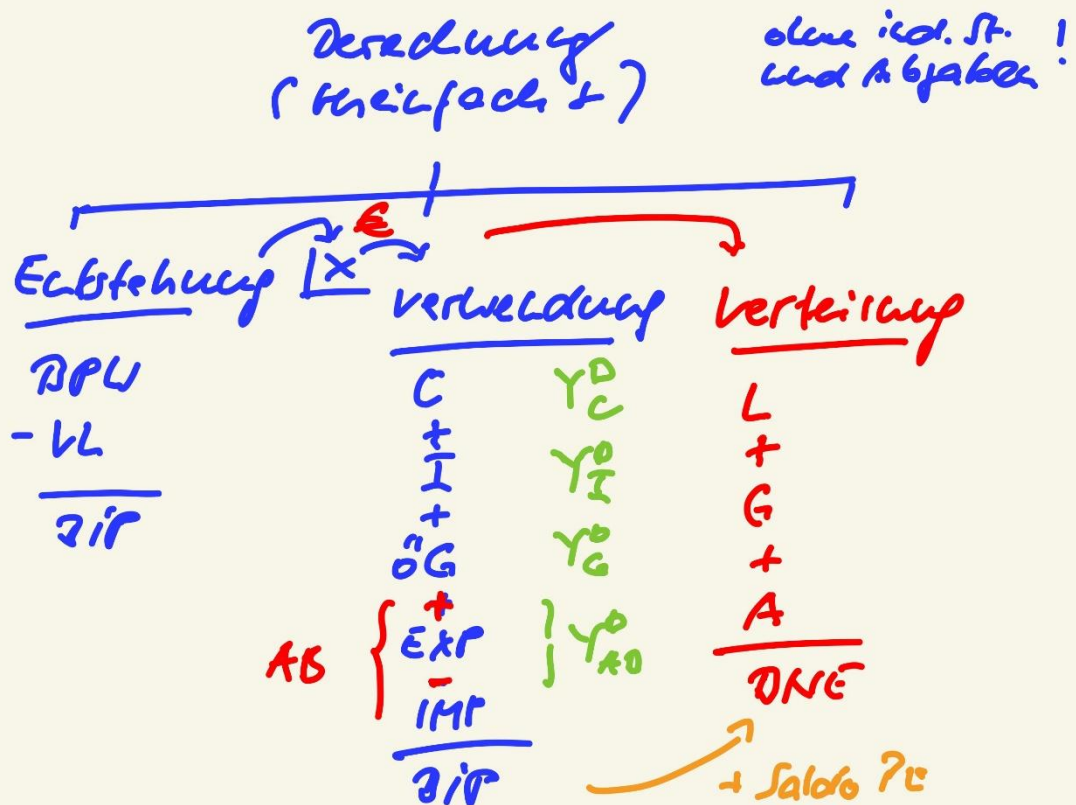 Berechnung
(vereinfacht)
ohne ind. St. !
und Abgaben
€
Entstehung
X
Verwendung
Verteilung
BPW
- VL
BIP
C
+
I
+
öG
+
EXP
-
IMP
BIP
AB
Y^D_C
Y^D_I
Y^D_G
Y^D_AB
L
+
G
+
A
BNE
+ Saldo PE